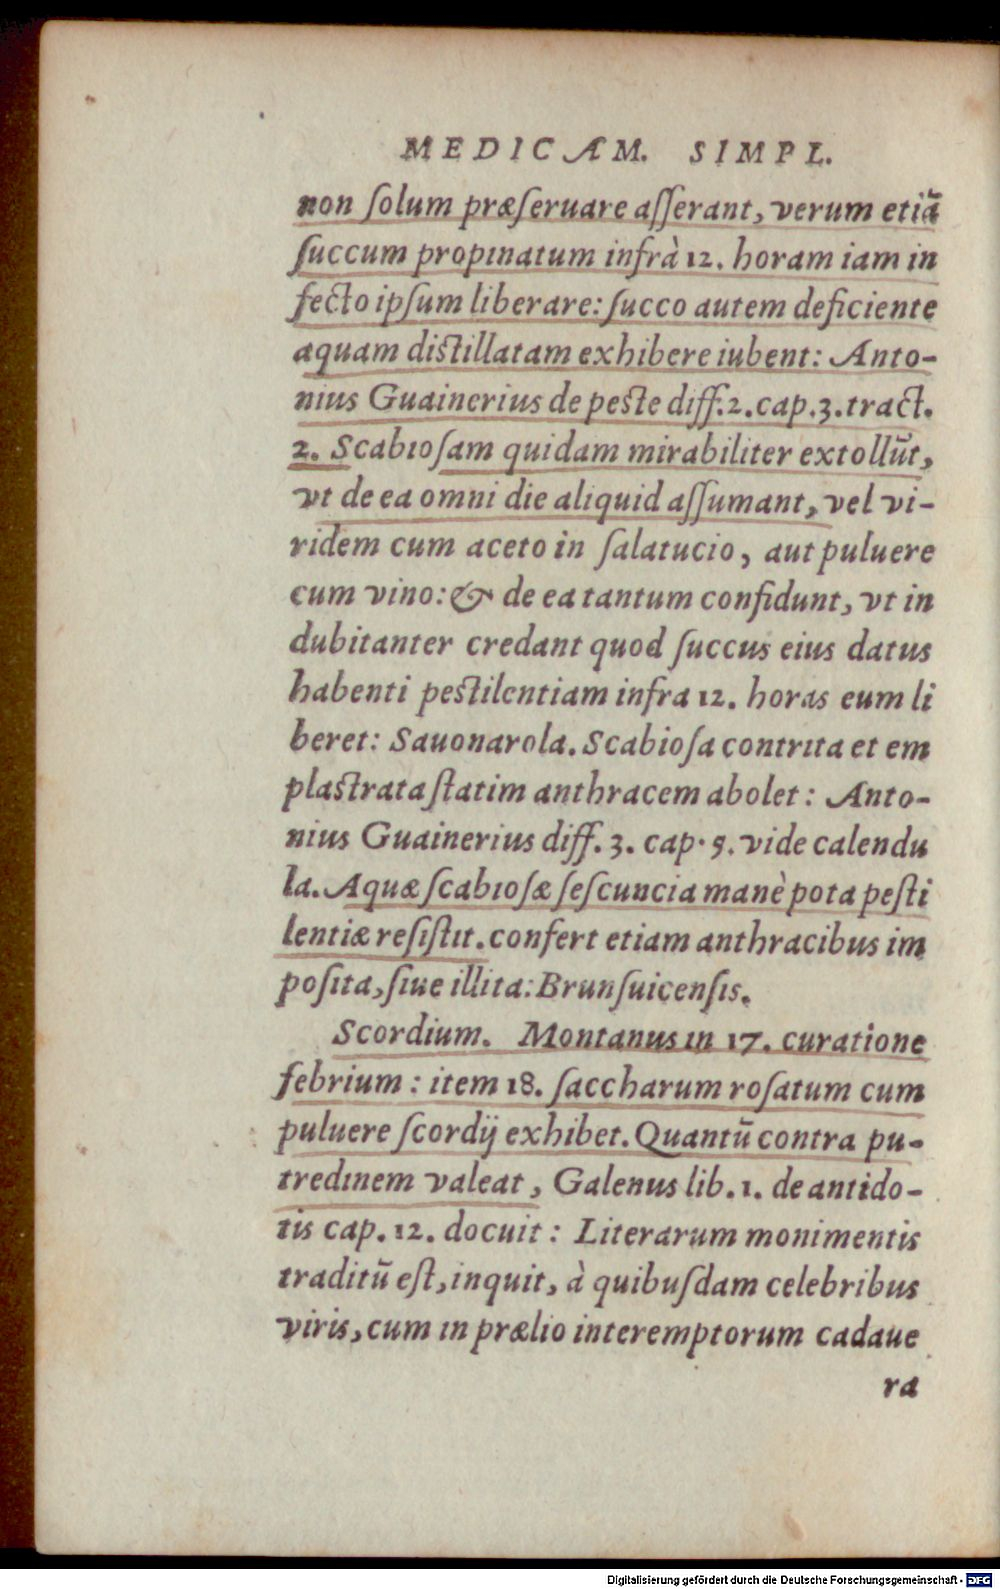 MEDICAM. SIMPL.
non ſolum præſeruare aſſerant, verum etiã
ſuccum propinatum infrà 12. horam iam in
fecto ipſum liberare: ſucco autem deficiente
aquam diſtillatam exhibere iubent: Anto-
nius Guainerius de peſte diff. 2. cap. 3. tract.
2. Scabioſam quidam mirabiliter extollũt,
vt de ea omni die aliquid aſſumant, vel vi-
ridem cum aceto in ſalatucio, aut puluere
cum vino: & de ea tantum confidunt, vt in
dubitanter credant quod ſuccus eius datus
habenti peſtilentiam infra 12. horas eum li
beret: Sauonarola. Scabioſa contrita et em
plaſtrata ſtatim anthracem abolet: Anto-
nius Guainerius diff. 3. cap. 5. vide calendu
la. Aquæ ſcabioſæ ſeſcuncia manè pota peſti
lentiæ reſiſtit. confert etiam anthracibus im
poſita, ſiue illita: Brunſuicenſis.
Scordium. Montanus in 17. curatione
febrium: item 18. ſaccharum roſatum cum
puluere ſcordij exhibet. Quantũ contra pu-
tredinem valeat, Galenus lib. 1. de antido-
tis cap. 12. docuit: Literarum monimentis
traditũ eſt, inquit, à quibuſdam celebribus
viris, cum in prælio interemptorum cadaue
ra
Digitalisierung gefördert durch die Deutsche Forschungsgemeinschaft - DFG